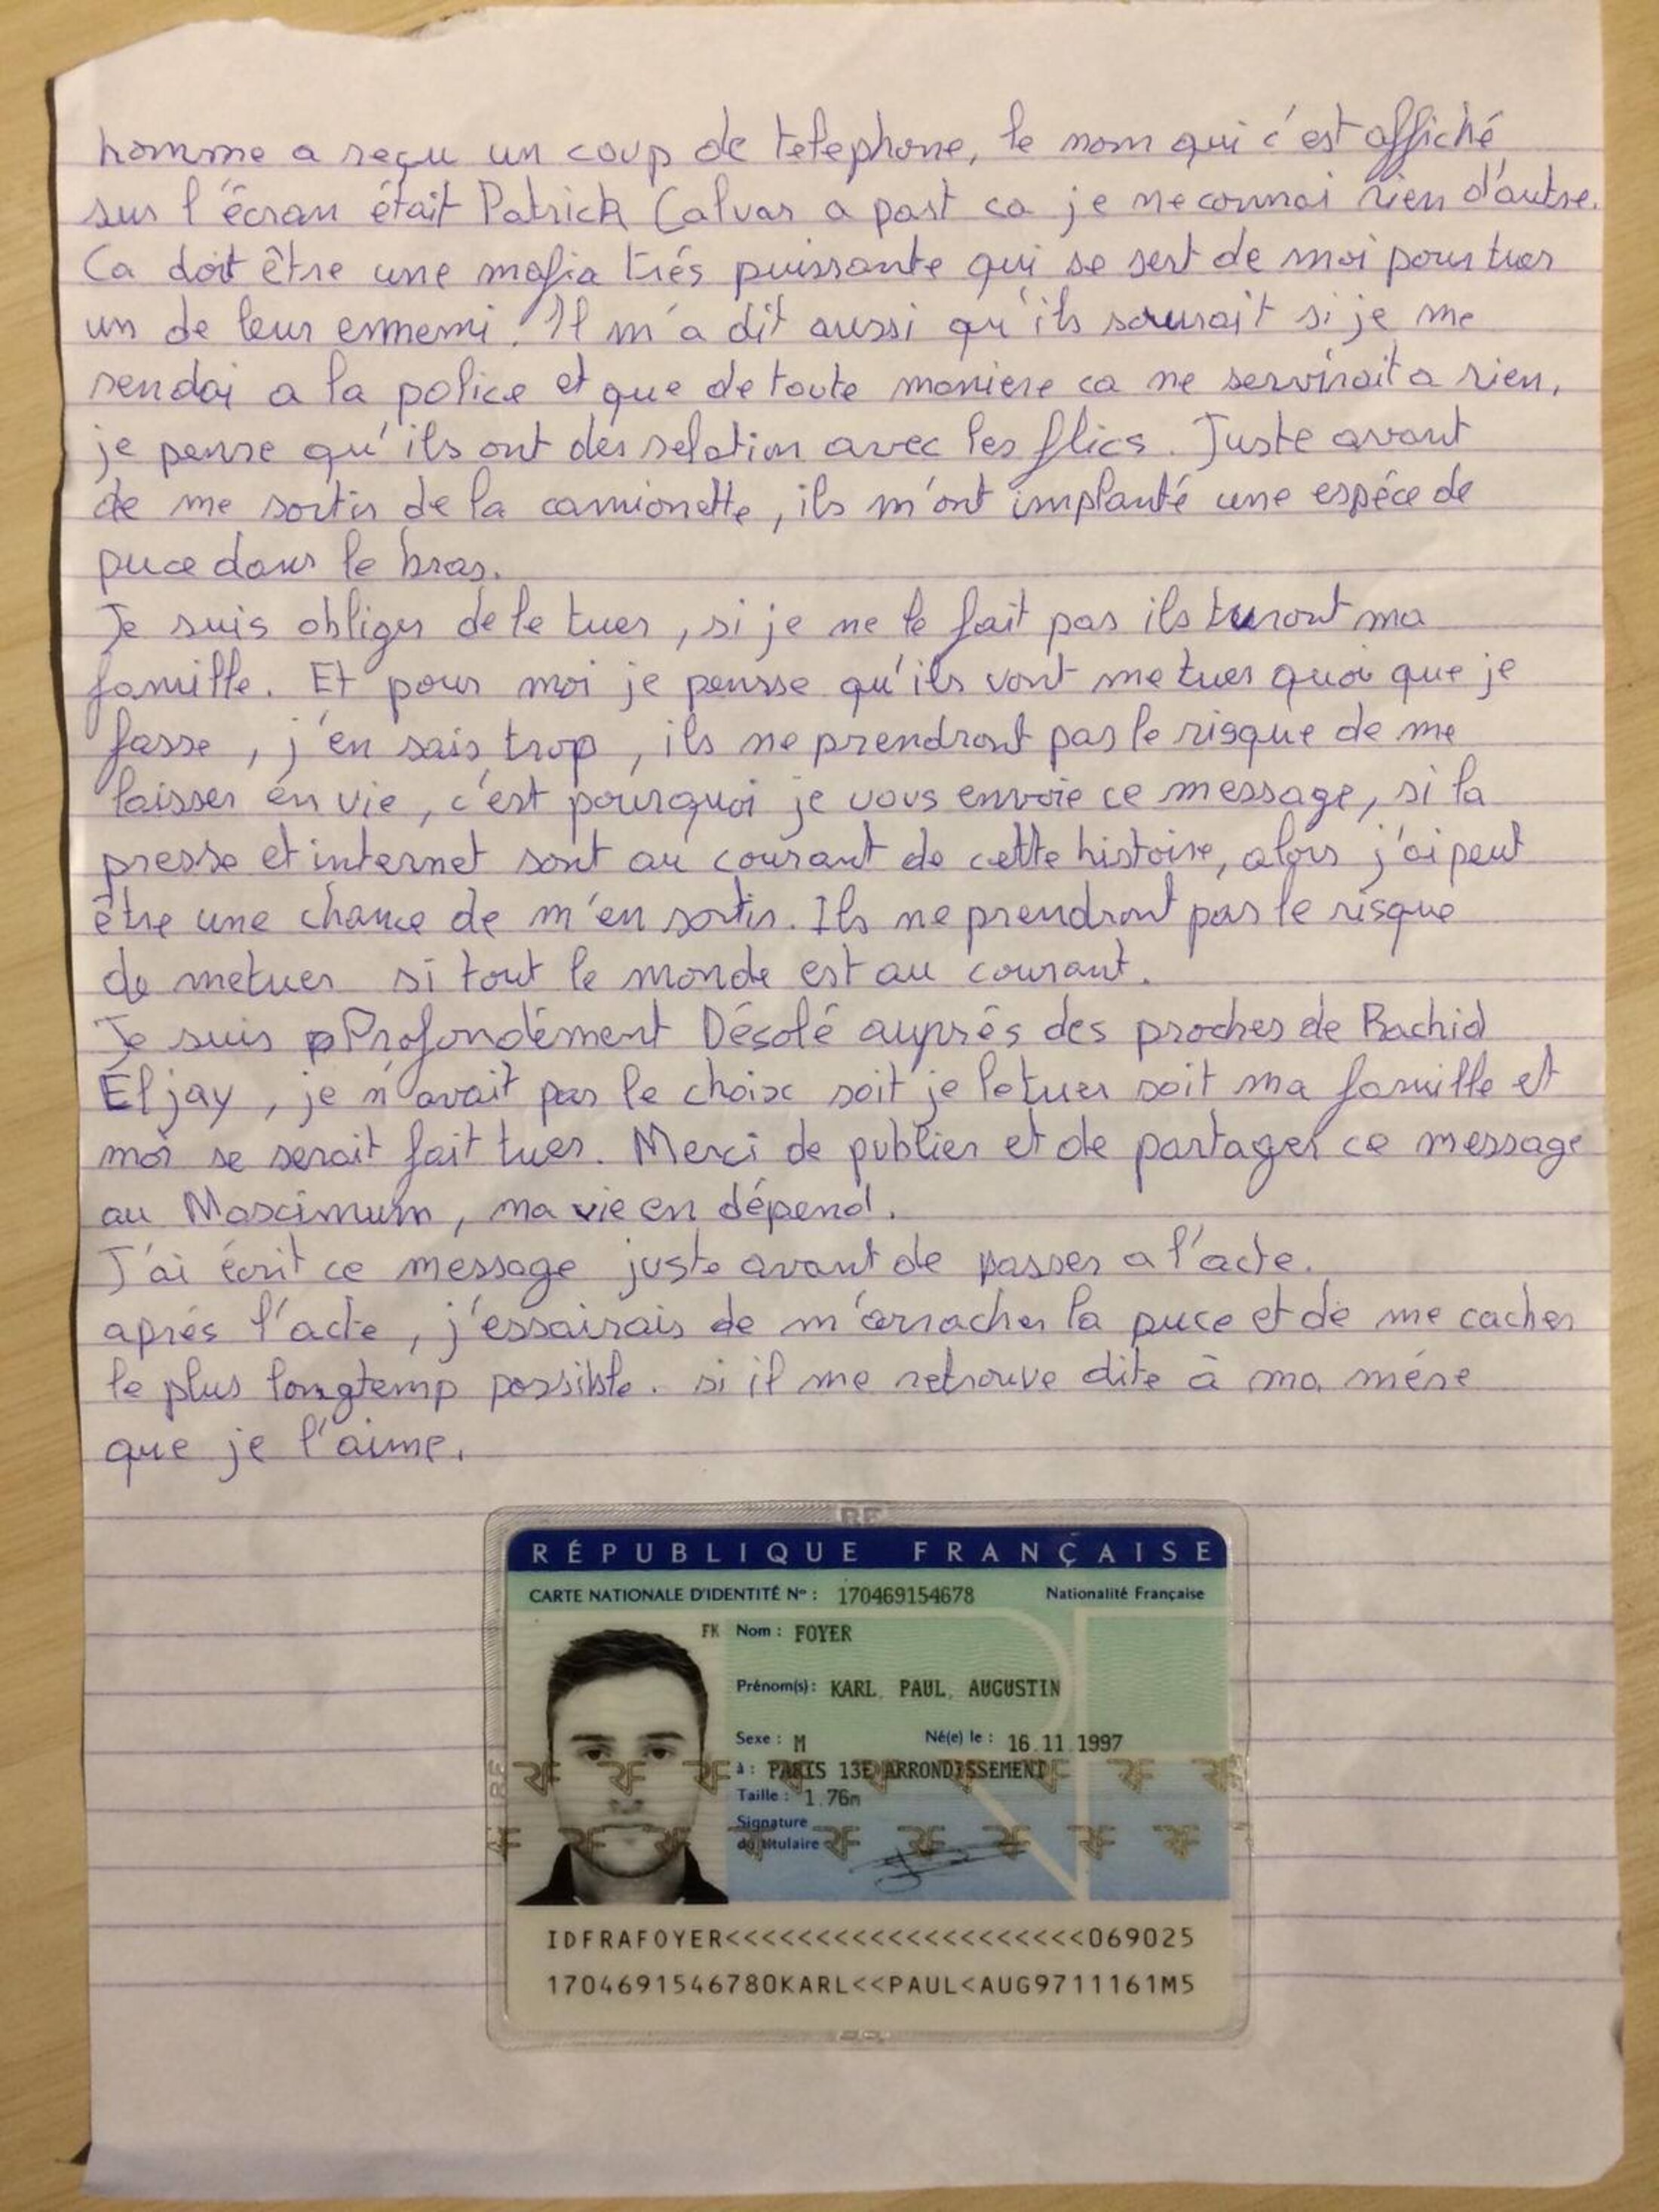 homme a reçu un coup de telephone, le nom qui c'est affiché
sur l'écran était Patrick Calvar a part ca je ne connai rien d'autre.
Ca doit être une mafia trés puissante qui se sert de moi pour tuer
un de leur ennemi. Il m'a dit aussi qu'ils saurait si je me
rendai a la police et que de toute maniere ca ne servirait a rien,
je pense qu'ils ont des relation avec les flics. Juste avant
de me sortir de la camionette, ils m'ont implanté une espéce de
puce dans le bras.
Je suis obliger de le tuer, si je ne le fait pas ils turont ma
famille. Et pour moi je pensse qu'ils vont me tuer quoi que je
fasse, j'en sais trop, ils ne prendront pas le risque de me
laisser en vie, c'est pourquoi je vous envoie ce message, si la
presse et internet sont au courant de cette histoire, alors j'ai peut
être une chance de m'en sortir. Ils ne prendront pas le risque
de me tuer si tout le monde est au courant.
Je suis Profondément Désolé auprés des proches de Rachid
Eljay, je n'avait pas le choix soit je le tuer soit ma famille et
moi se serait fait tuer. Merci de publier et de partager ce message
au Maximum, ma vie en dépend.
J'ai écrit ce message juste avant de passer a l'acte.
aprés l'acte, j'essairais de m'arracher la puce et de me cacher
le plus longtemp possible. si il me retrouve dite à ma mére
que je l'aime.
RF
RÉPUBLIQUE FRANÇAISE
CARTE NATIONALE D'IDENTITÉ Nº : 170469154678 Nationalité Française
FK Nom : FOYER
Prénom(s) : KARL, PAUL, AUGUSTIN
Sexe : M Né(e) le : 16.11.1997
à : PARIS 13E ARRONDISSEMENT
Taille : 1.76m
Signature
du titulaire
IDFRAFOYER<<<<<<<<<<<<<<<<<<<<069025
1704691546780KARL<<PAUL<AUG9711161M5